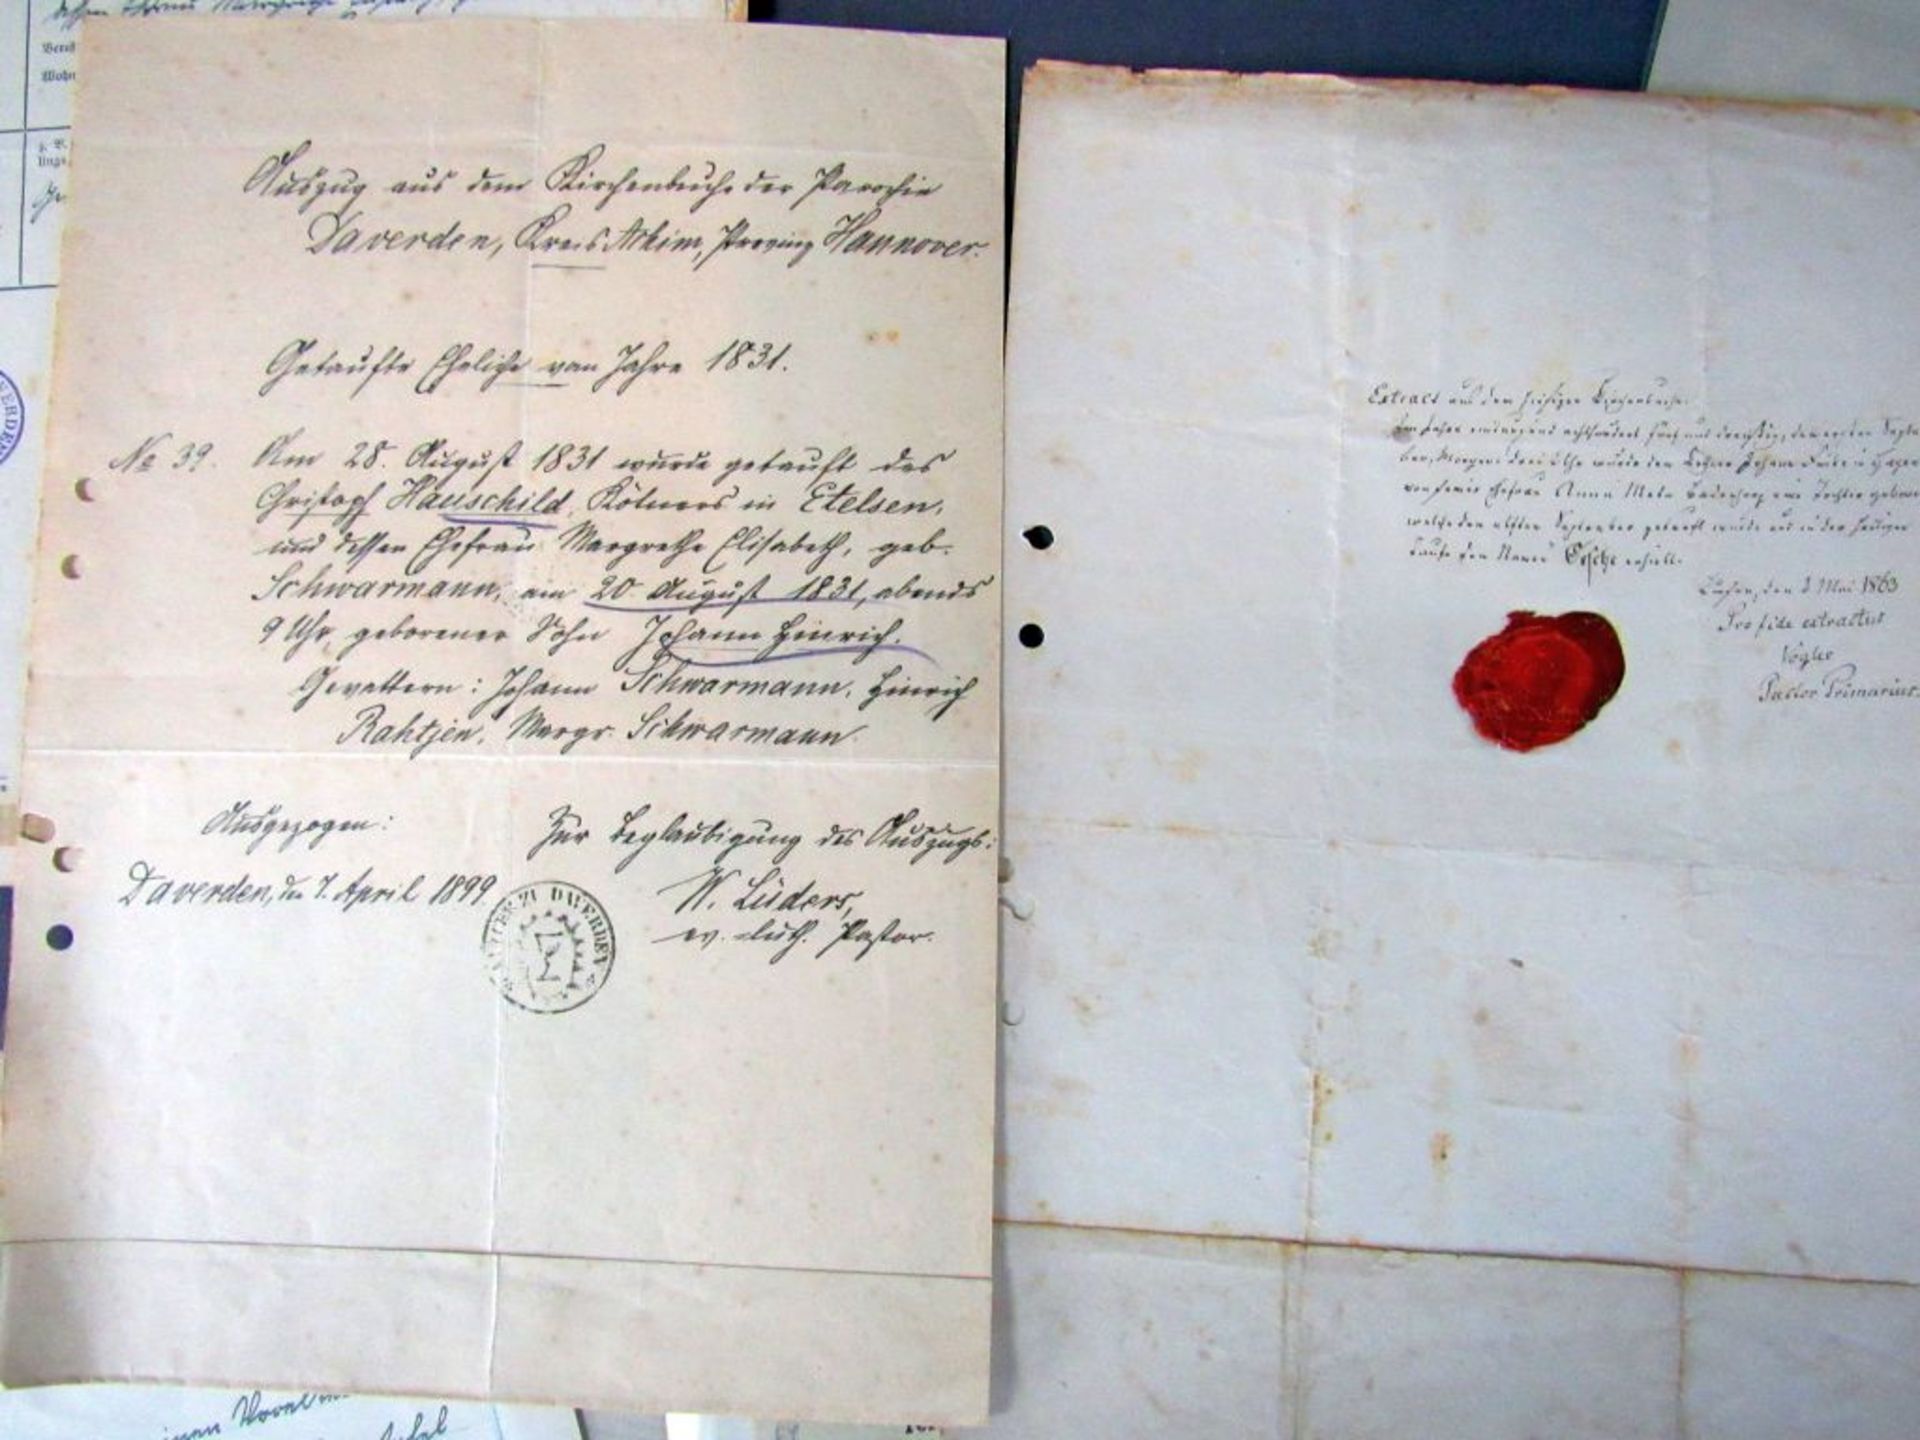 Auszug aus dem Kirchenbuche der Parochie
Daverden, Kreis Achim, Provinz Hannover.
Getaufte Eheliche vom Jahre 1831.
No 39. Am 28. August 1831 wurde getauft des
Christoph Hauschild, Kötners in Etelsen,
und dessen Ehefrau Margrethe Elisabeth, geb.
Schwarmann, am 20. August 1831, abends
9 Uhr, geborener Sohn Johann Hinrich.
Gevattern: Johann Schwarmann, Hinrich
Rahtjen, Margr. Schwarmann.
Ausgezogen:
Daverden, den 7. April 1899
Zur Beglaubigung des Auszugs:
W. Lüders,
ev.-luth. Pastor.
ZU DAVERDEN
Extract aus dem hiesigen Kirchenbuche.
Im Jahre eintausend achthundert fünf und dreißig, den ersten Septem
ber, Morgens drei Uhr wurde dem Johann
von seiner Ehefrau Anna Meta eine Tochter geboren
welche den elften September getauft wurde und in der heiligen
Taufe den Namen Gesche erhielt.
den 1 Mai 1863
Pro fide extractus
Vogler
Pastor Primarius.
Beruf
Wohn